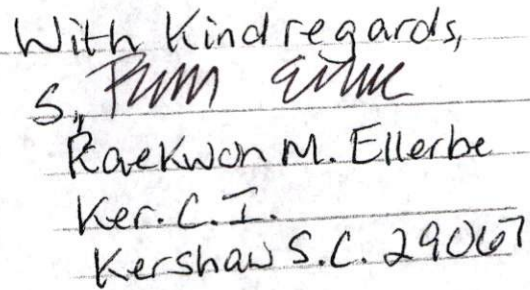 With Kind regards,
S,
RaeKwon M. Ellerbe
Ker. C. I.
Kershaw S.C. 29067